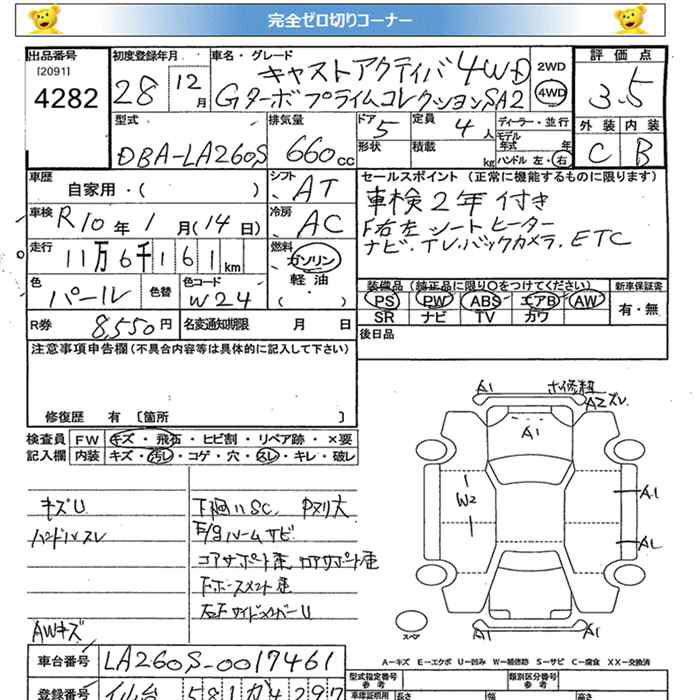 完全ゼロ切りコーナー
出品番号 初度登録年月 車名・グレード 評価点
[2091]
4282 28 12月 キャストアクティバ 4WD 2WD 4WD 3.5
Gターボプライムコレクション SA2
型式 排気量 ドア 定員 ディーラー・並行 外装 内装
DBA-LA260S 660cc 5 4人 モデル年式 年 C B
形状 積載 kg ハンドル 左・右
車歴 自家用・( ) シフト AT セールスポイント(正常に機能するものに限ります)
車検 R10年1月(14日) 冷房 AC 車検2年付き
F右左シートヒーター
走行 11万6千161km 燃料 ガソリン ナビ.TV.バックカメラ.ETC
軽油
・( )
色 パール 色替 色コード W24 装備品(純正品に限り〇をつけてください) 新車保証書
PS PW ABS エアB AW 有・無
SR ナビ TV カワ
R券 8,550円 名変通知期限 月 日 後日品
注意事項申告欄(不具合内容等は具体的に記入して下さい)
修復歴 有 [箇所 ]
検査員 FW キズ・飛石・ヒビ割・リペア跡・×要
記入欄 内装 キズ・汚レ・コゲ・穴・スレ・キレ・破レ
A1 A2 ズレ
A1
W2 A1
A1 A1
スペア
キズU 下廻リSC.
サビ
AWキズ
A-キズ E-エクボ U-凹み W-補修跡 S-サビ C-腐食 XX-交換済
車台番号 LA260S-0017461
登録番号 仙台 581 か 4297
型式指定番号 類別区分番号
参考 参考
車庫証明用 長さ 幅 高さ